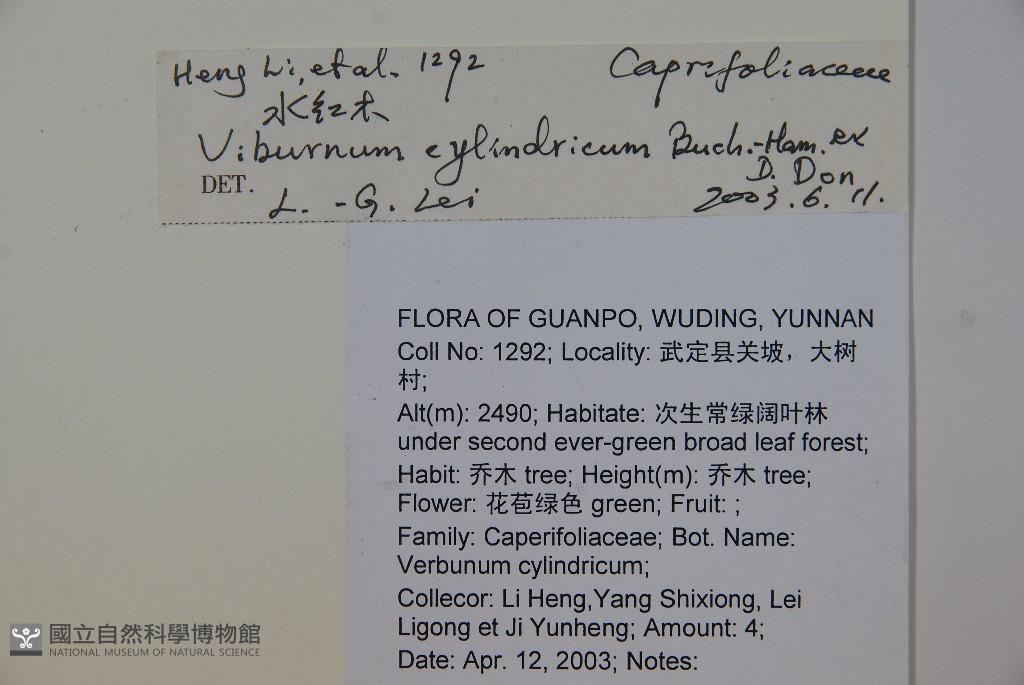 Heng Li, et al. 1292 Caprifoliaceae
水红木
Viburnum cylindricum Buch.-Ham. ex
D. Don
DET. L.-G. Lei 2003.6.11.
FLORA OF GUANPO, WUDING, YUNNAN
Coll No: 1292; Locality: 武定县关坡，大树
村;
Alt(m): 2490; Habitate: 次生常绿阔叶林
under second ever-green broad leaf forest;
Habit: 乔木 tree; Height(m): 乔木 tree;
Flower: 花苞绿色 green; Fruit: ;
Family: Caperifoliaceae; Bot. Name:
Verbunum cylindricum;
Collecor: Li Heng,Yang Shixiong, Lei
Ligong et Ji Yunheng; Amount: 4;
Date: Apr. 12, 2003; Notes:
國立自然科學博物館
NATIONAL MUSEUM OF NATURAL SCIENCE